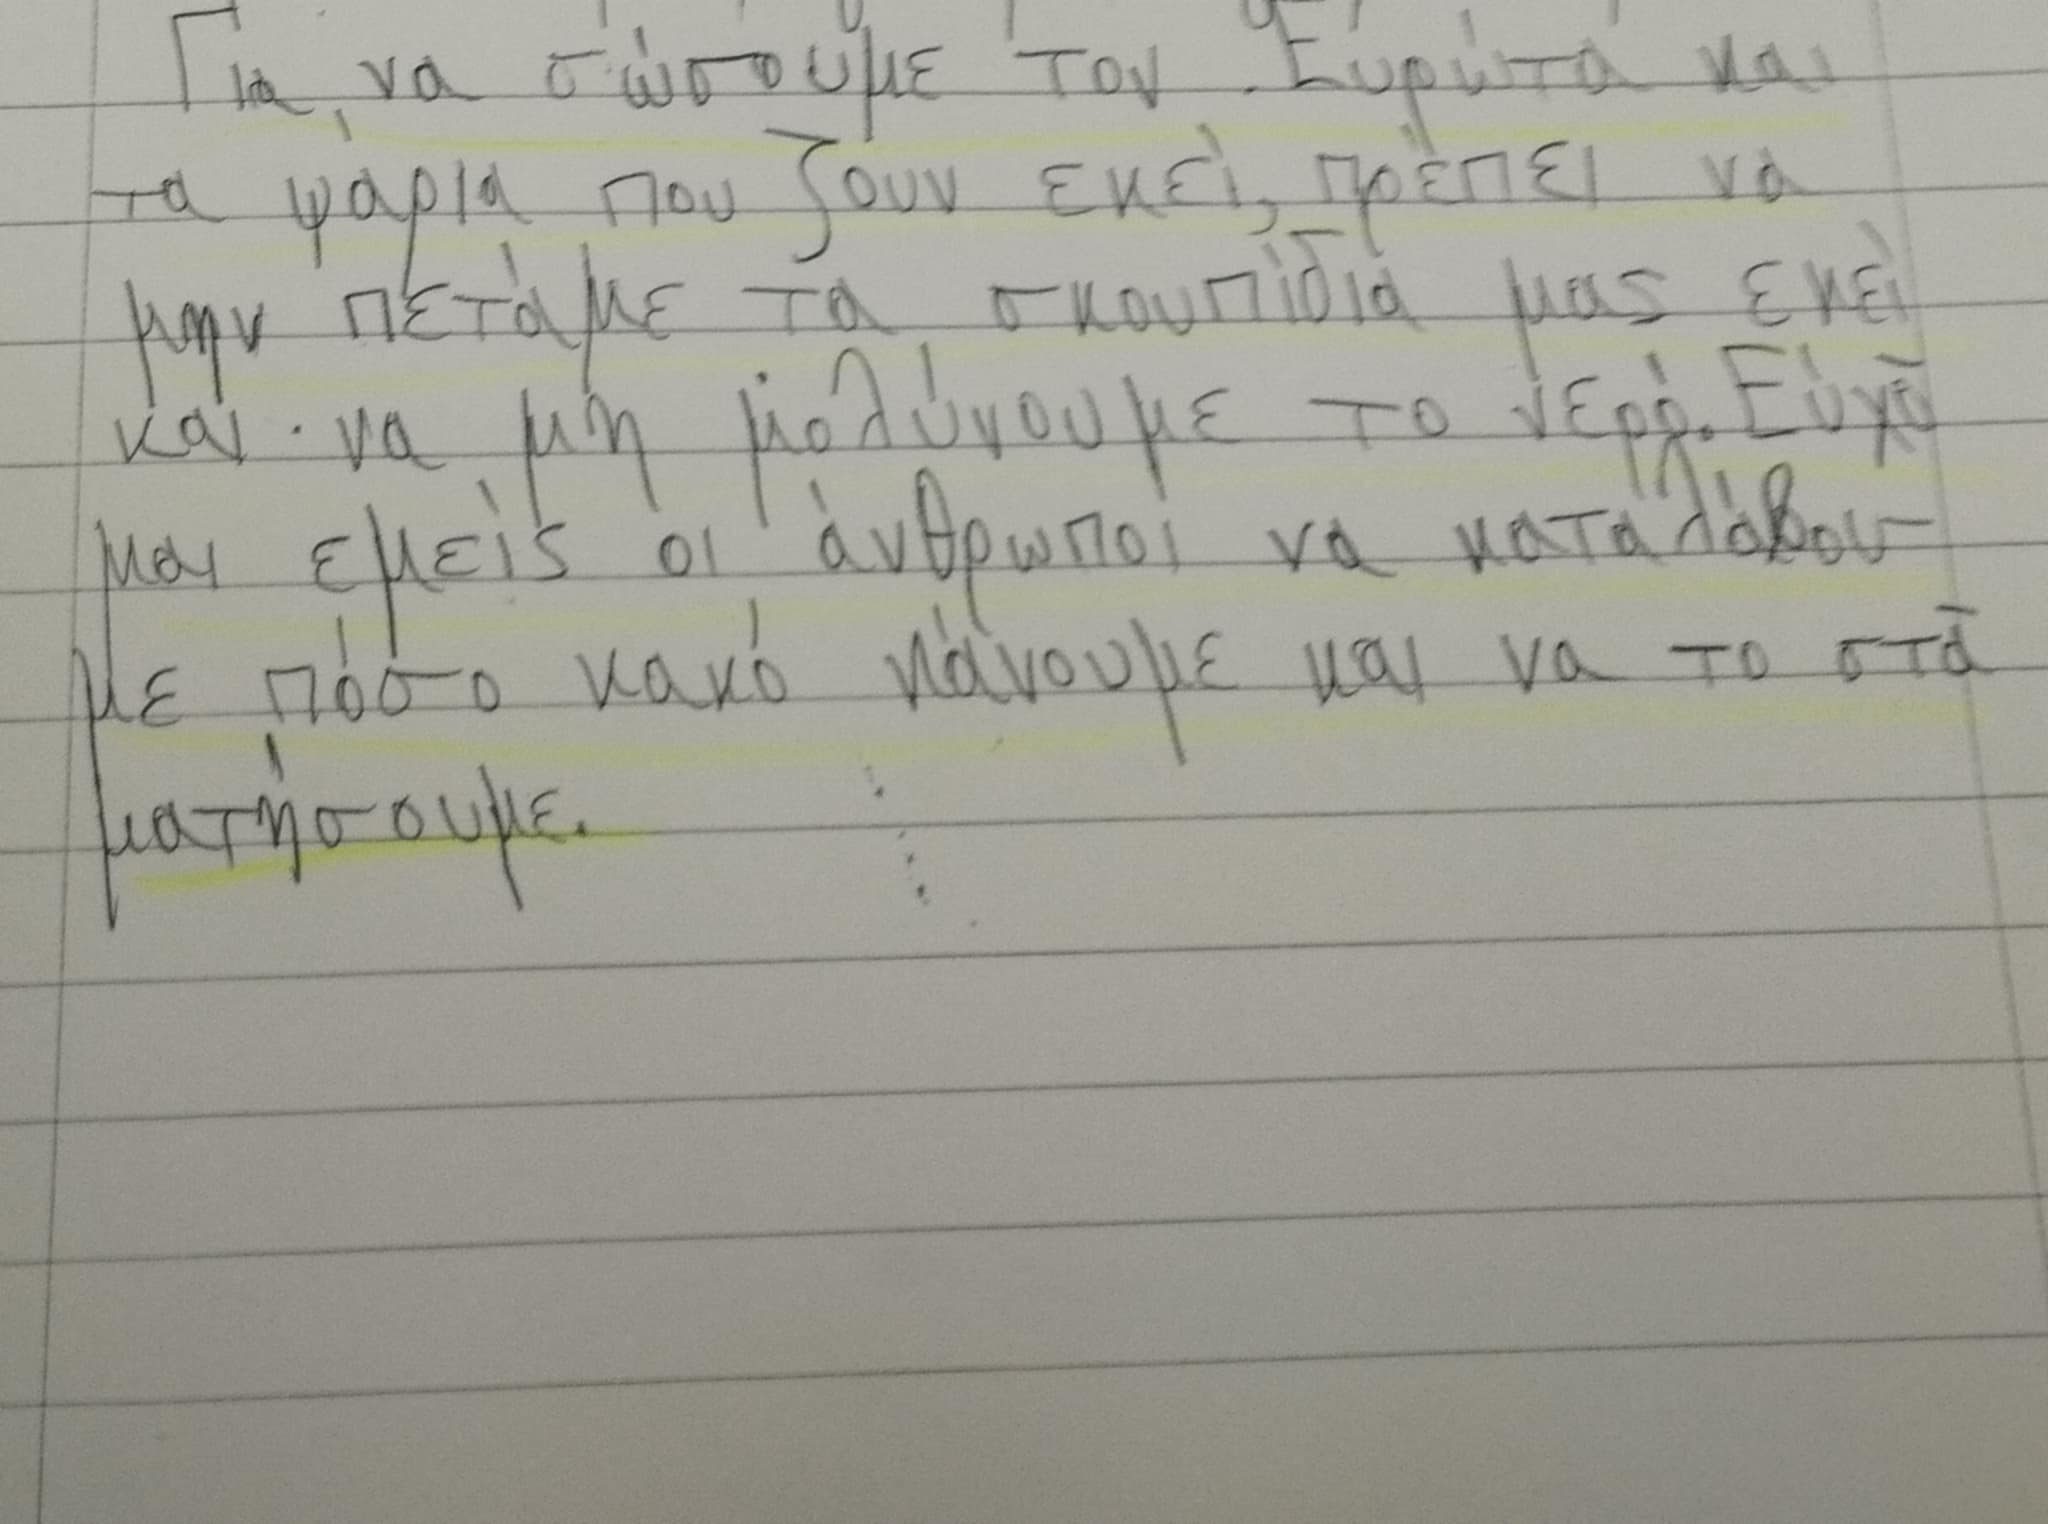 Για να σώσουμε τον Ευρώτα και
τα ψάρια που ζουν εκεί, πρέπει να
μην πετάμε τα σκουπίδια μας εκεί
και να μη μολύνουμε το νερό. Εύχο
μαι εμείς οι άνθρωποι να καταλάβου-
με πόσο κακό κάνουμε και να το στα
ματήσουμε.